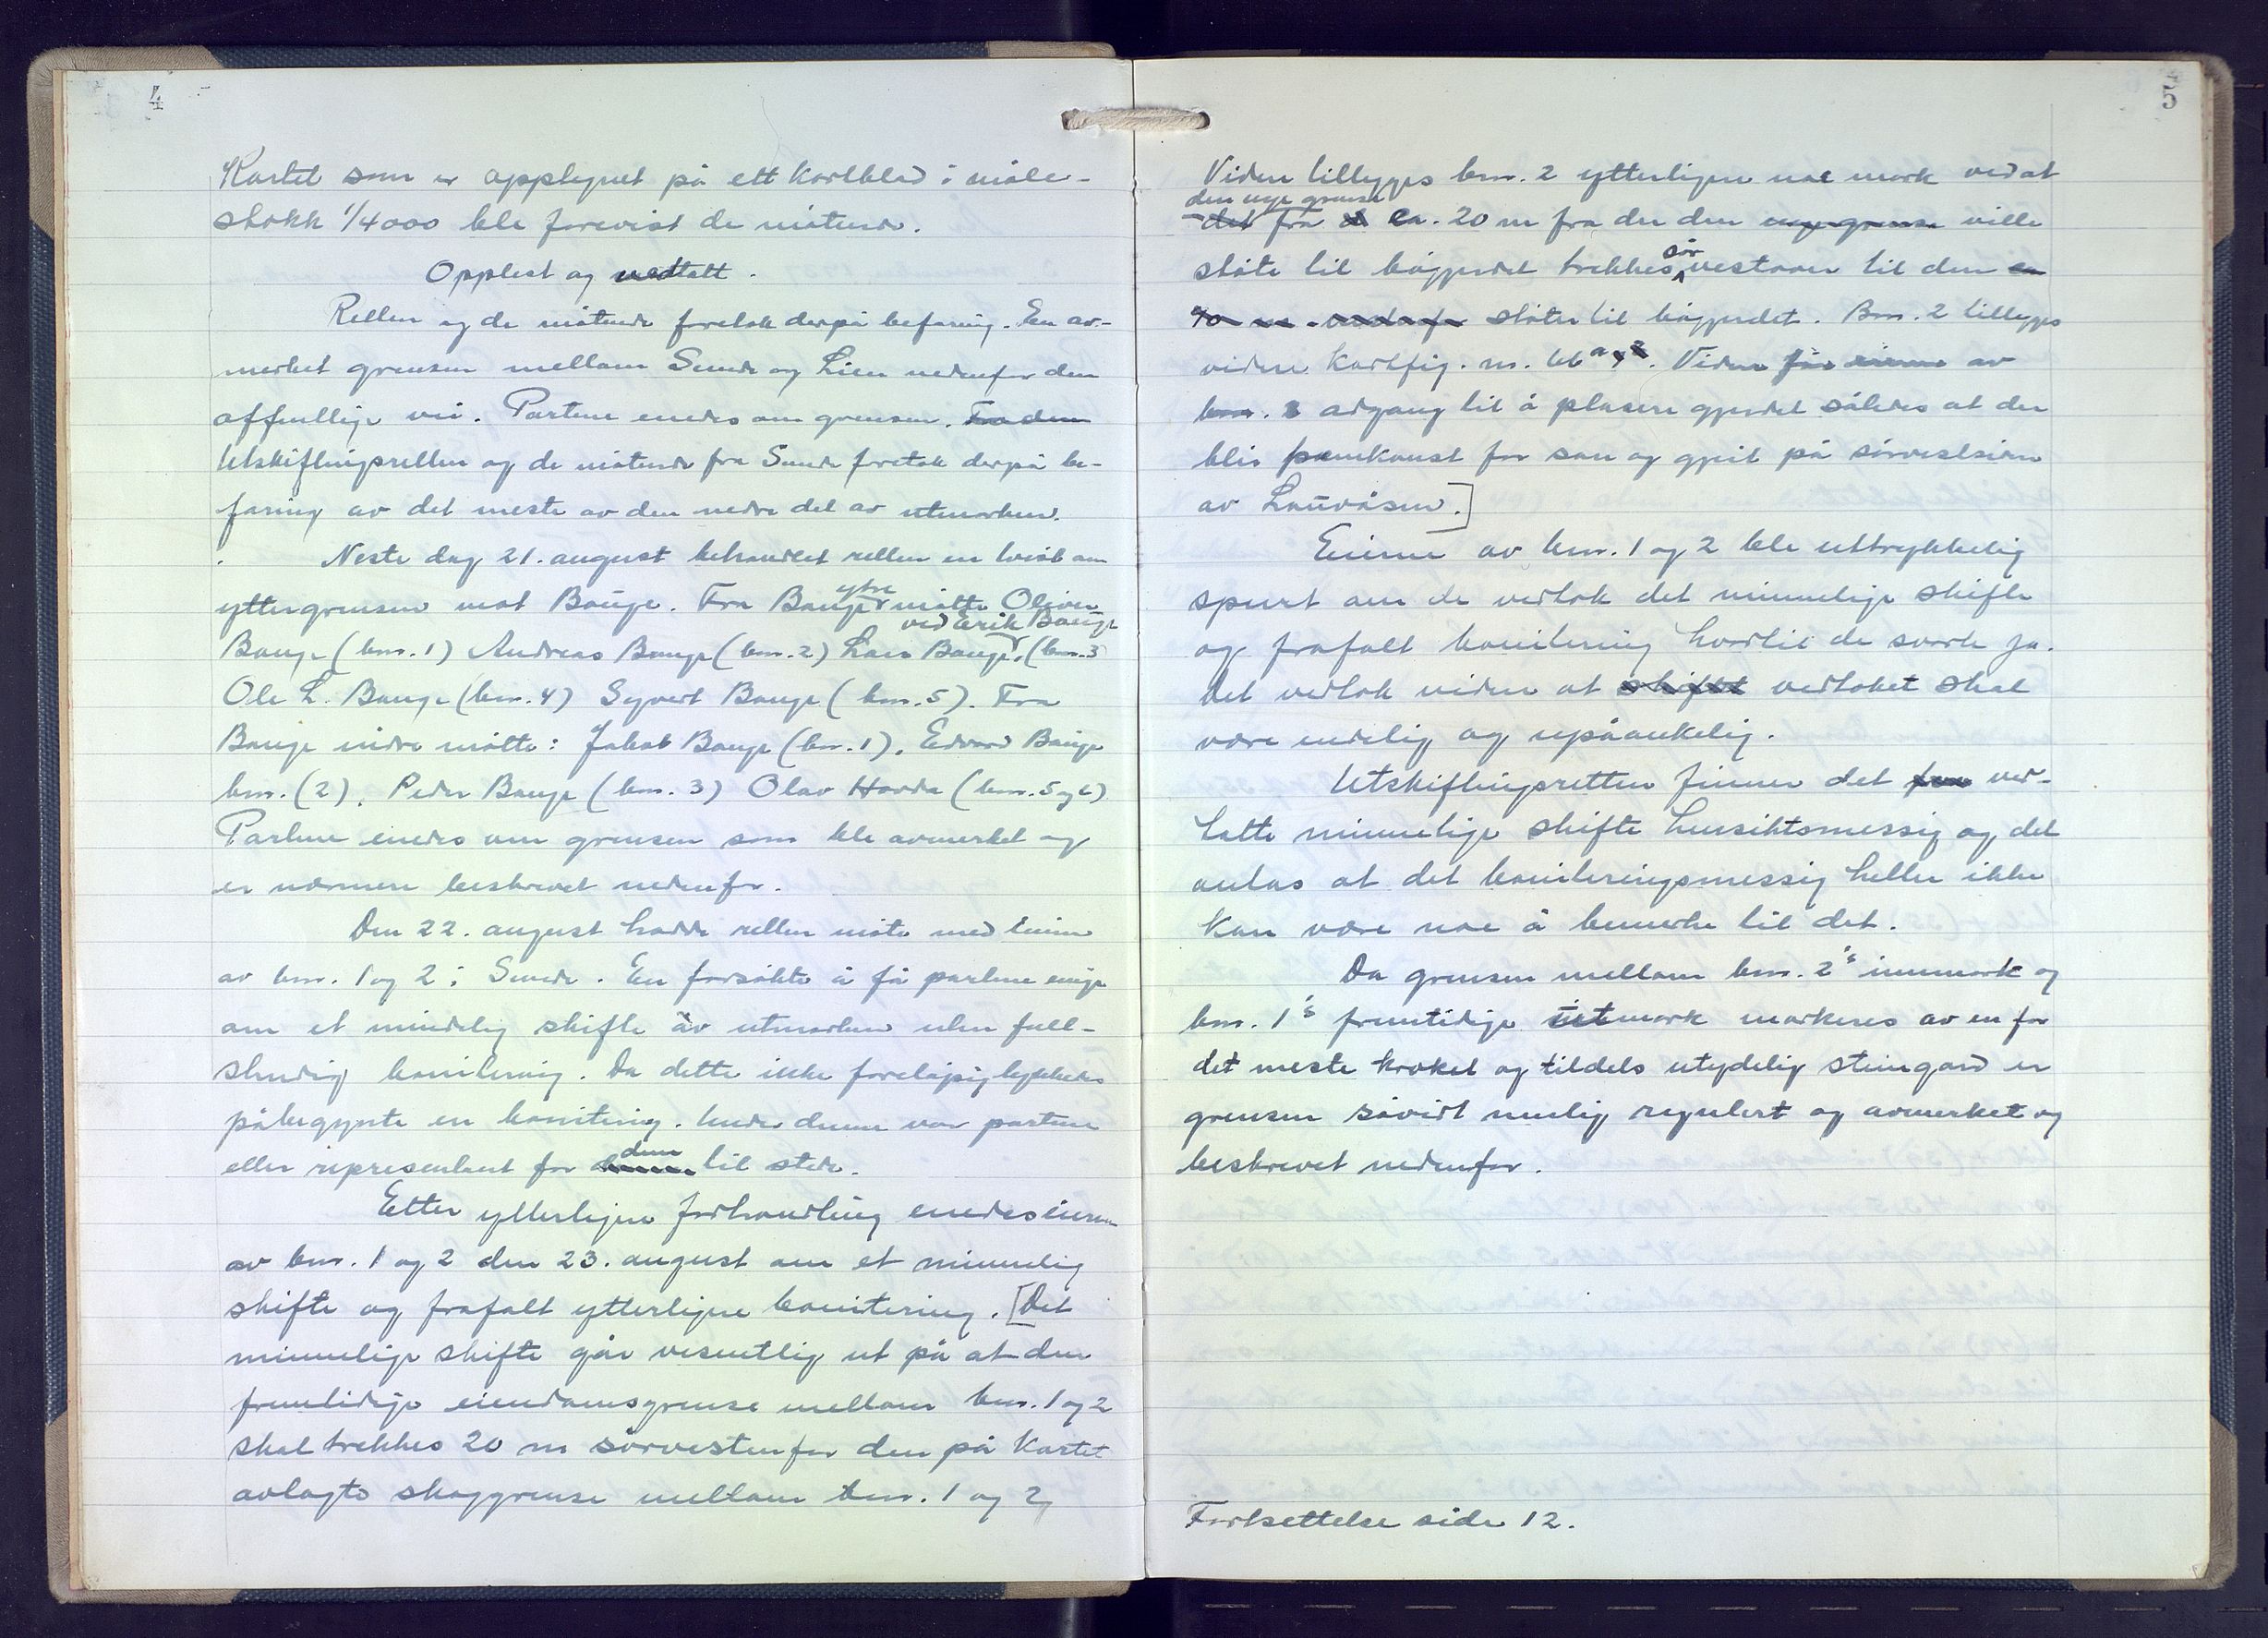 4
Kartet som er opptegnet på ett kartblad i måle-
stokk 1/4000 ble forevist de møtende.
Opplest og vedtatt.
Retten og de møtende foretok derpå befaring. En av-
merket grensen mellom Sunde og Lien nedenfor den
offentlige vei. Partene enedes om grensen. Fra den
Utskiftningsretten og de møtende fra Sunde foretok derpå be-
faring av det meste av den nedre del av utmarken.
Neste dag 21. august behandlet retten en tvist om
yttergrensen mot Bauge. Fra Bauge ytre møtte Oliver
ved Erik Bauge
Bauge (bnr. 1) Andreas Bauge (bnr. 2) Lars Bauge, (bnr. 3
Ole L. Bauge (bnr. 4) Syvert Bauge (bnr. 5). Fra
Bauge indre møtte: Jakob Bauge (bnr. 1), Edvard Bauge
bnr. (2), Peder Bauge (bnr. 3) Olav Hovda (bnr. 5 og 6)
Partene enedes om grensen som ble avmerket og
er nærmere beskrevet nedenfor.
Den 22. august hadde retten møte med eierne
av bnr. 1 og 2 i Sunde. En forsøkte å få partene enige
om et mindelig skifte av utmarken uten full-
stendig bonitering. Da dette ikke foreløpig lykkedes
påbegynte en bonitering. Under denne var partene
eller representant for dem til stede.
Etter ytterligere forhandling enedes eierne
av bnr. 1 og 2 den 23. august om et minnelig
skifte og frafalt ytterligere bonitering. [Det
minnelige skifte går vesentlig ut på at den
fremtidige eiendomsgrense mellom bnr. 1 og 2
skal trekkes 20 m sørvestenfor den på kartet
avlagte skoggrense mellom bnr. 1 og 2,
5
Videre tillegges bnr. 2 ytterligere noe mark ved at
den nye grense
det fra ca. 20 m fra der den nye grense ville
støte til bøgjerdet trekkes sørvestover til den
40 m nedenfor støter til bøgjerdet. Bnr. 2 tillegges
videre kartfig. nr. 66 a. Videre får eierne av
bnr. 2 adgang til å plasere gjerdet således at der
blir framkomst for sau og gjeit på sørvestsiden
av Lauvåsen.]
Eierne av bnr. 1 og 2 ble uttrykkelig
spurt om de vedtok det minnelige skifte
og frafalt bonitering hvortil de svarte ja.
Det vedtok videre at skiftet vedtaket skal
være endelig og upåankelig.
Utskiftningsretten finner det ved-
tatte minnelige skifte hensiktsmessig og det
antas at det boniteringsmessig heller ikke
kan være noe å bemerke til det.
Da grensen mellom bnr. 2's innmark og
bnr. 1's fremtidige utmark markeres av en for
det meste kroket og tildels utydelig steingard er
grensen såvidt mulig regulert og avmerket og
beskrevet nedenfor.
Fortsettelse side 12.